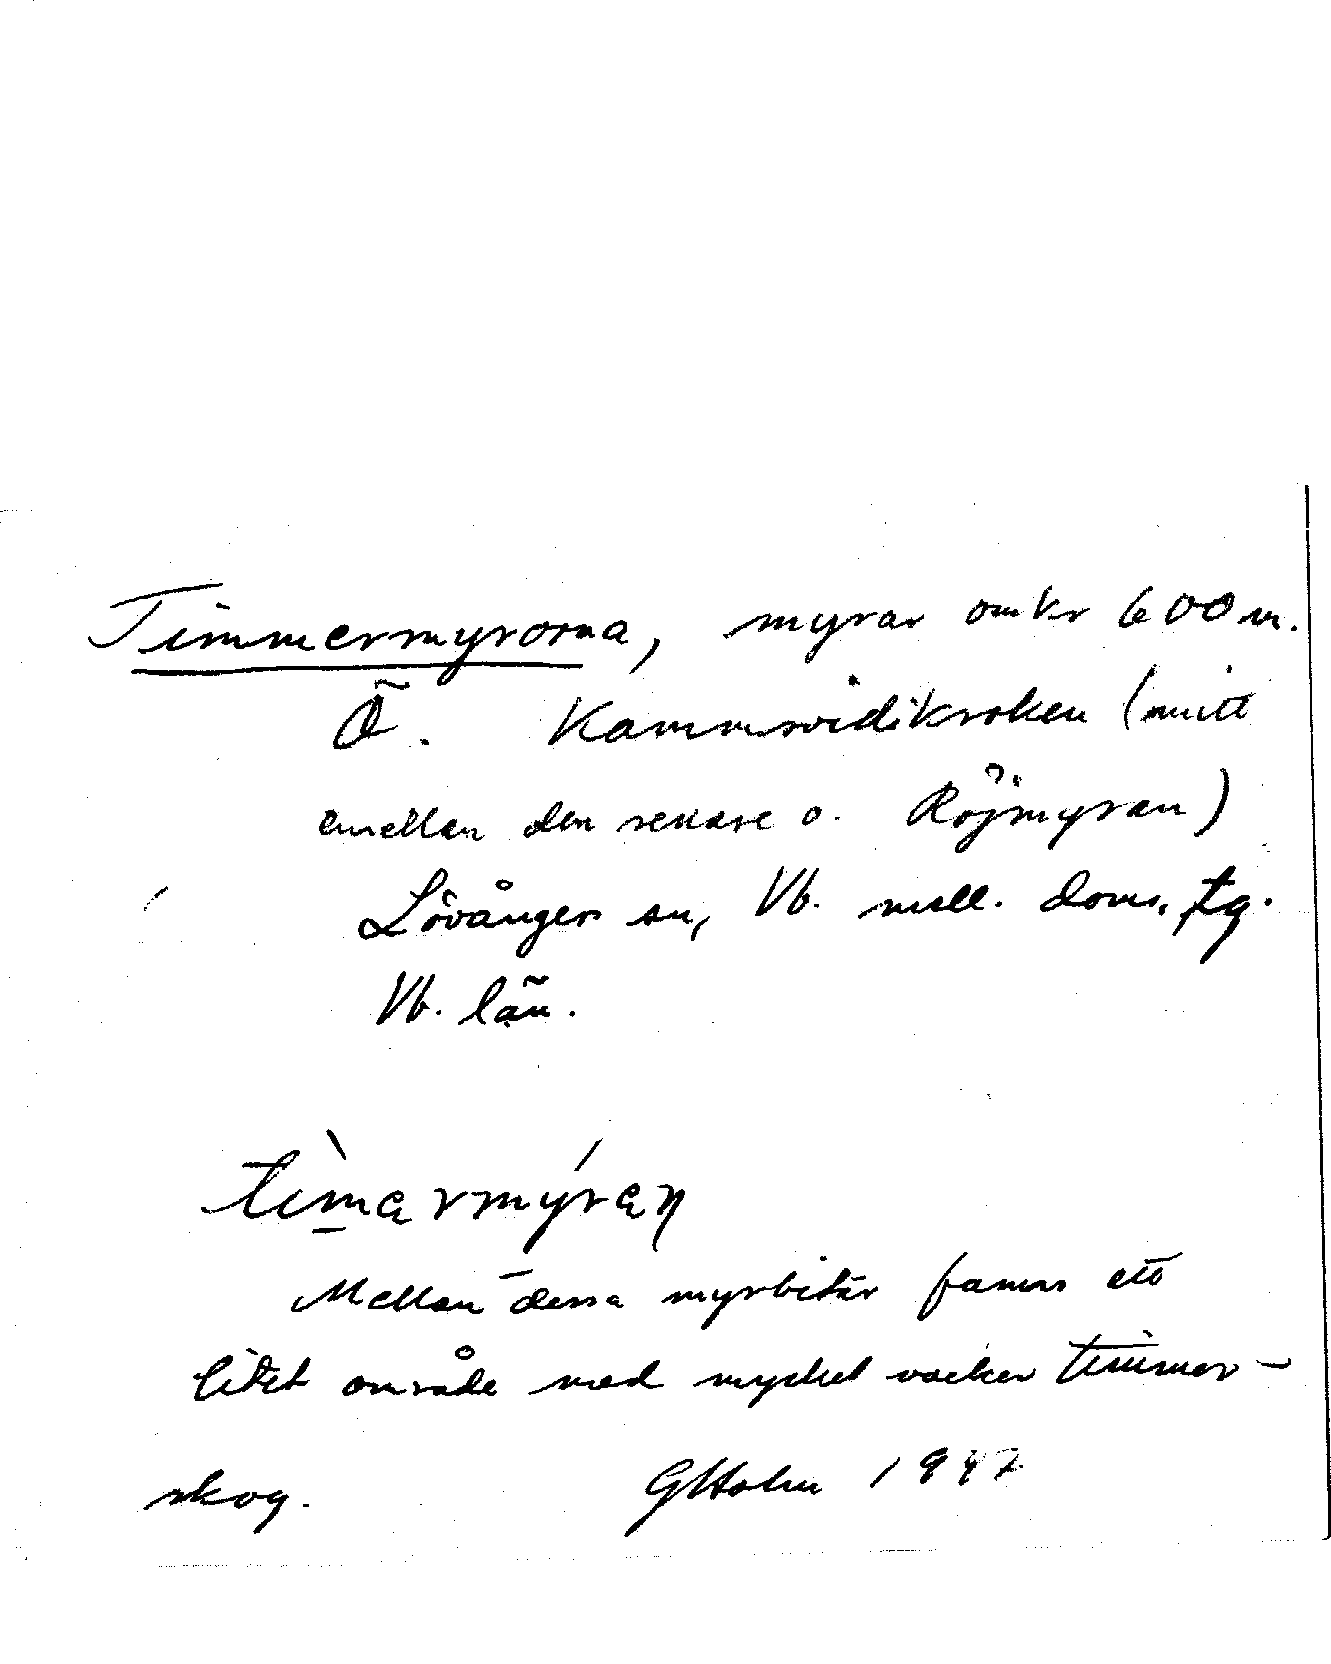 Timmermyrorna, myrar omkr 600 m.
Ö. Kammsvidikroken (mitt
emellan den senare o. Röjmyran)
Lövånger sn, Vb. mell. doms. tg.
Vb. län.
tìmarmýran
Mellan dessa myrbitar fanns ett
litet område med mycket vacker timmer-
skog. GHolm 1947